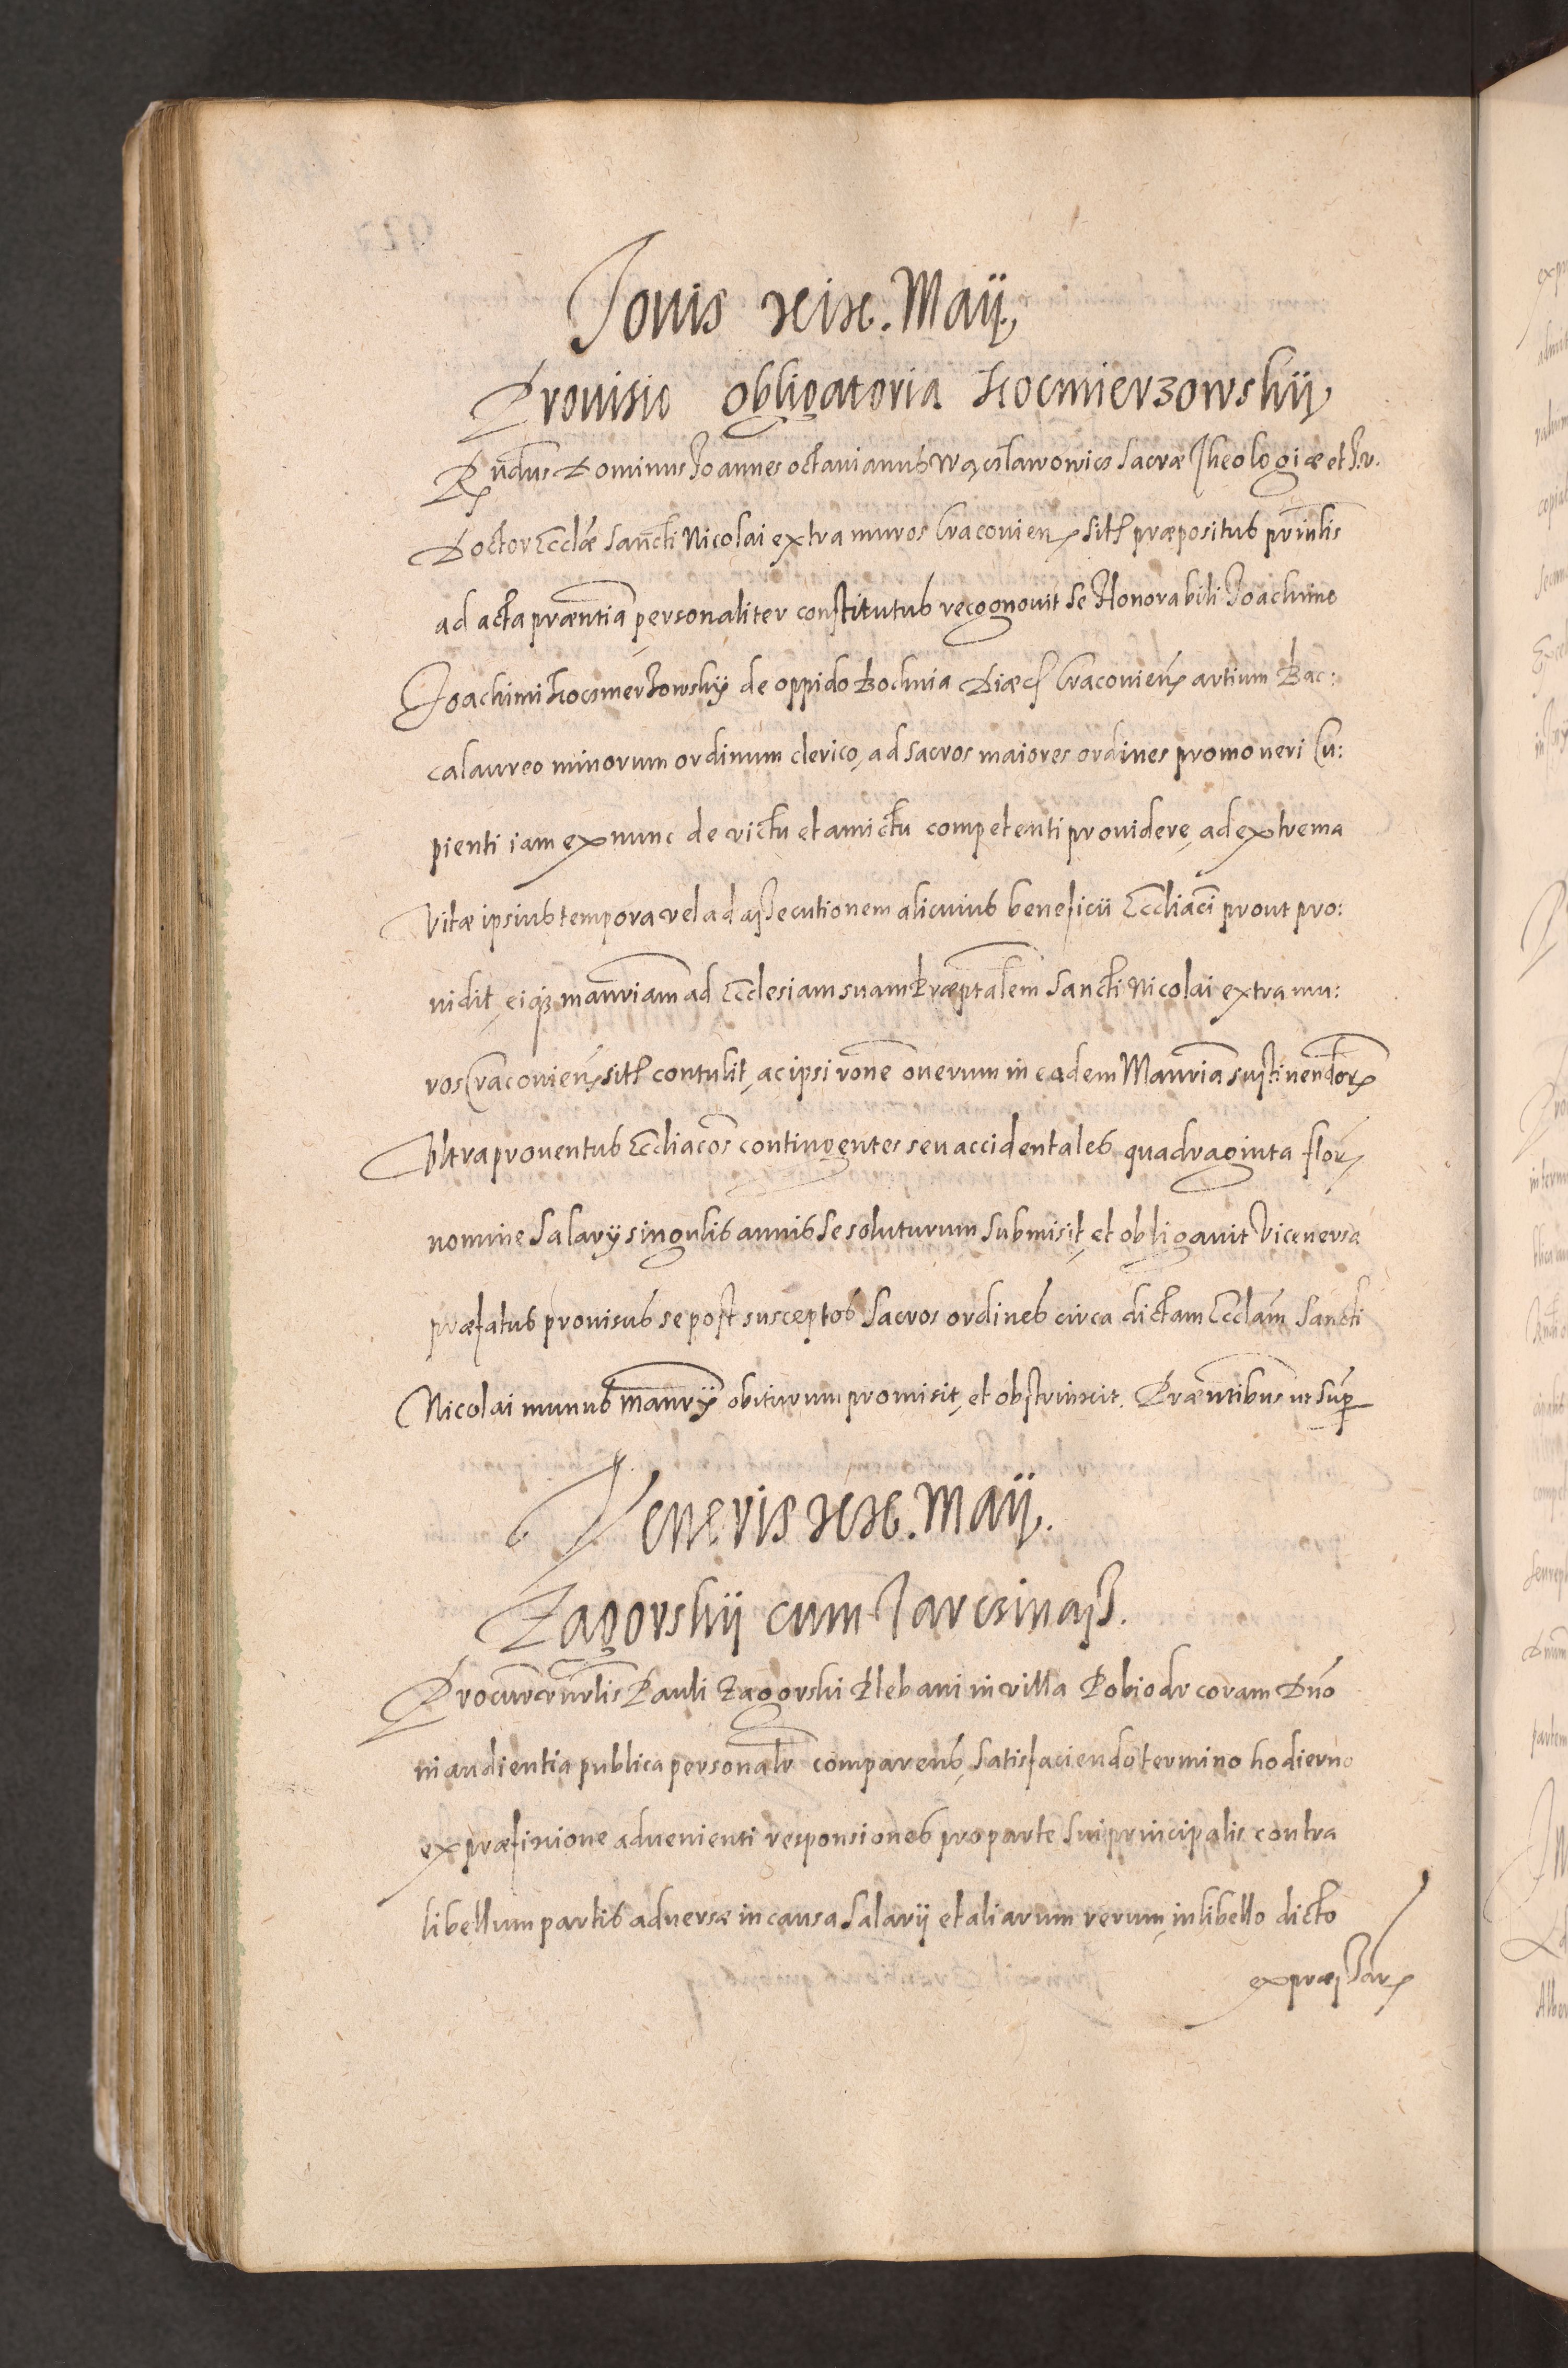 Jouis xix. Maij.
Prouisio obligatoria Kocmierzowskij
Rndus Dominus Joannes octauianus Wąsławowicz Sacræ Theologiæ et J.v.
Doctor Ecclæ Sancti Nicolai extra muros Cracouien sit præpositus prinlis
ad acta præntia personaliter constitutus recognouit se Honorabili Joachimo
Joachimi Koczmerzowskij de oppido Bochnia Diæc Cracouien artium Bac:
calaureo minorum ordinum clerico, ad sacros maiores ordines promoueri Cu:
pienti iam ex nunc de victu et amictu competenti prouidere, ad extrema
Vitæ ipsius tempora vel ad assecutionem alicuius beneficii Eccliaci prout pro:
uidit, eiqz manriam ad Ecclesiam suam Præptalem Sancti Nicolai extra mu:
ros Cracouien sit contulit, ac ipsi rone onerum in eadem Manria sustinendor
Vltra prouentus Eccliacos contingentes seu accidentales quadraginta flor
nomine Salarij singulis annis se soluturum submisit, et obligauit Vice uersa
præfatus prouisus se post susceptos Sacros ordines circa dictam Ecclam Sancti
Nicolai munus manrij obiturum promisit, et obstrinxit. Præntibus ut Supr
Veneris xx. Maij.
Zagorskij cum Jarczinass.
Procur Pauli Zagorski Plebani in villa Pobiedr coram Dno
in audientia publica personalr comparens, satisfaciendo termino hodierno
ex præfinione aduenienti responsiones pro parte sui principalis contra
libellum partis aduersæ in causa Salarij et aliarum rerum in libello dicto
expressar